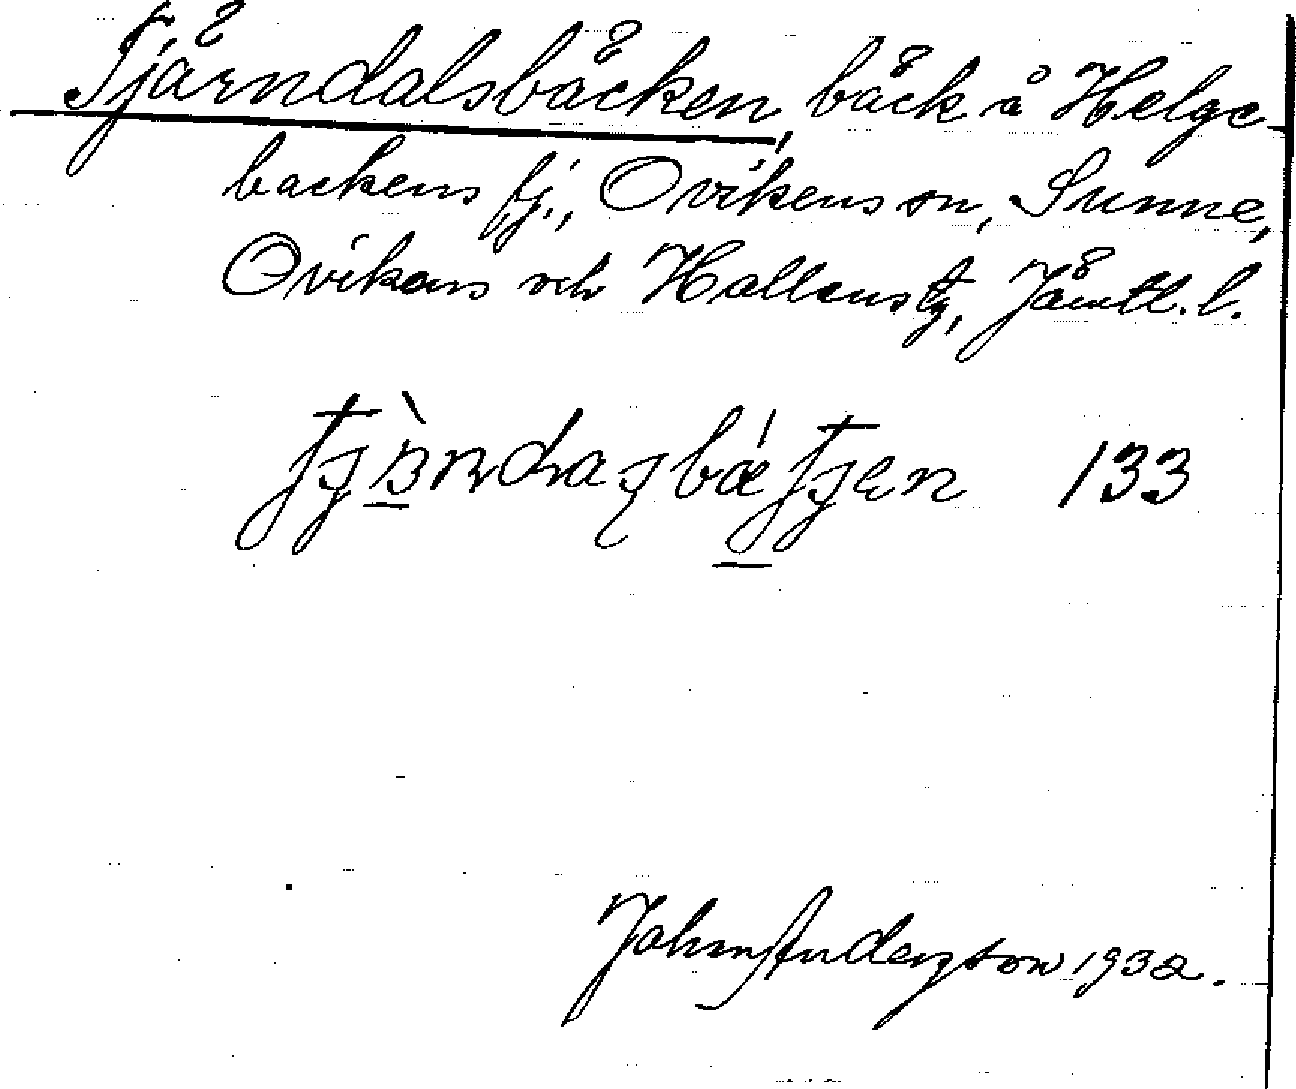 Tjärndalsbäcken, bäck å Helge-
backens fj., Ovikens sn, Sunne,
Ovikens och Hallens tg, Jämtl. l.
133
John Anderzson 1932.